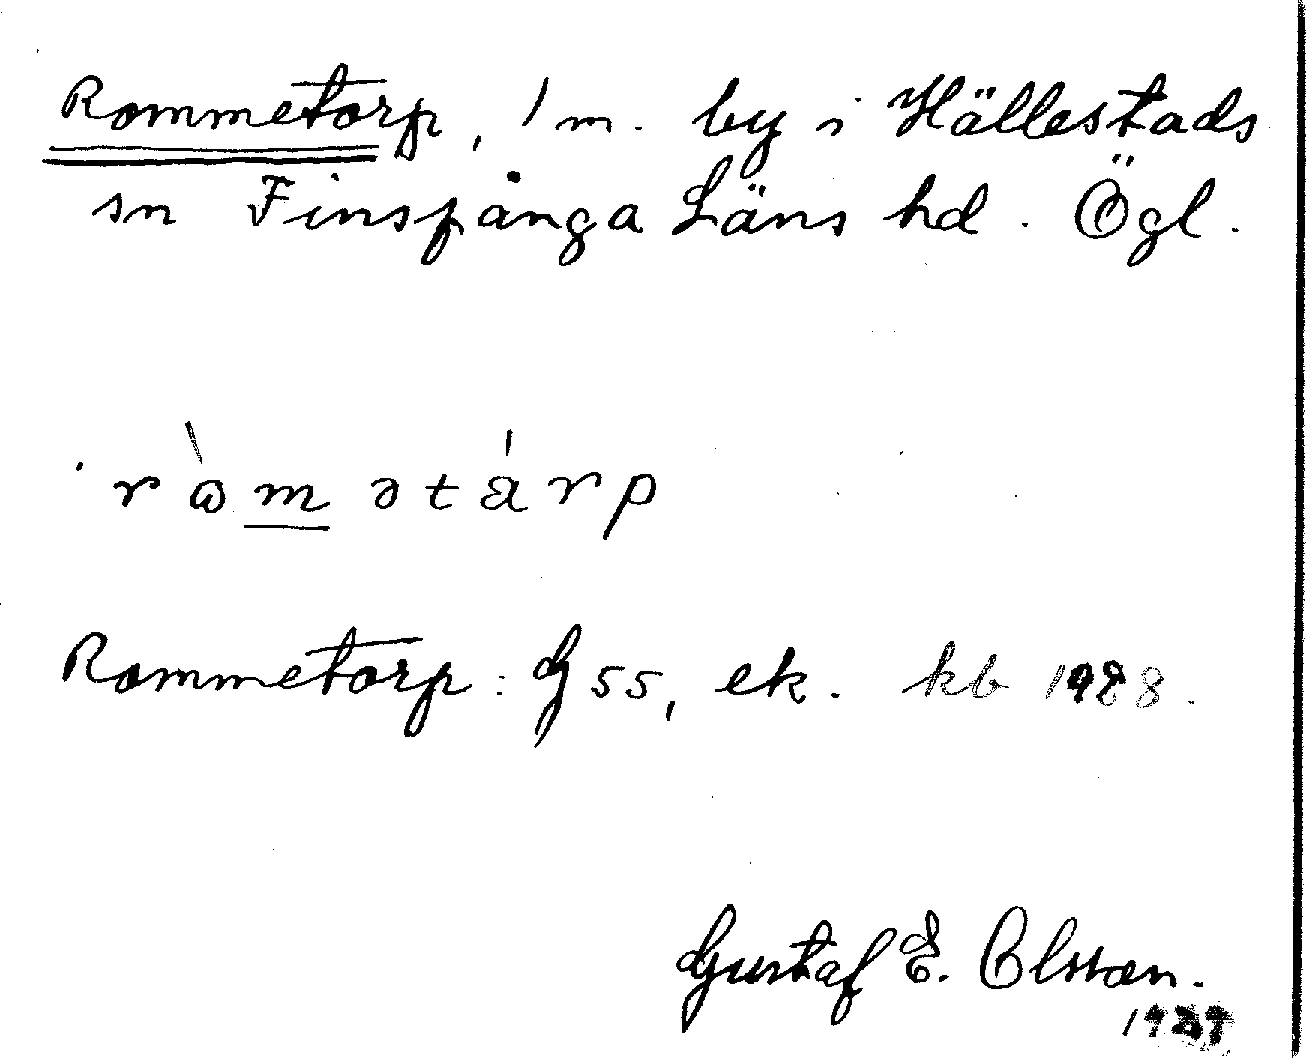 Rommetorp, 1 m. by i Hällestads
sn Finspånga Läns hd. Ögl.
ròmətárp
Rommetorp: G 55, ek. kb 1928.
Gustaf E. Olsson.